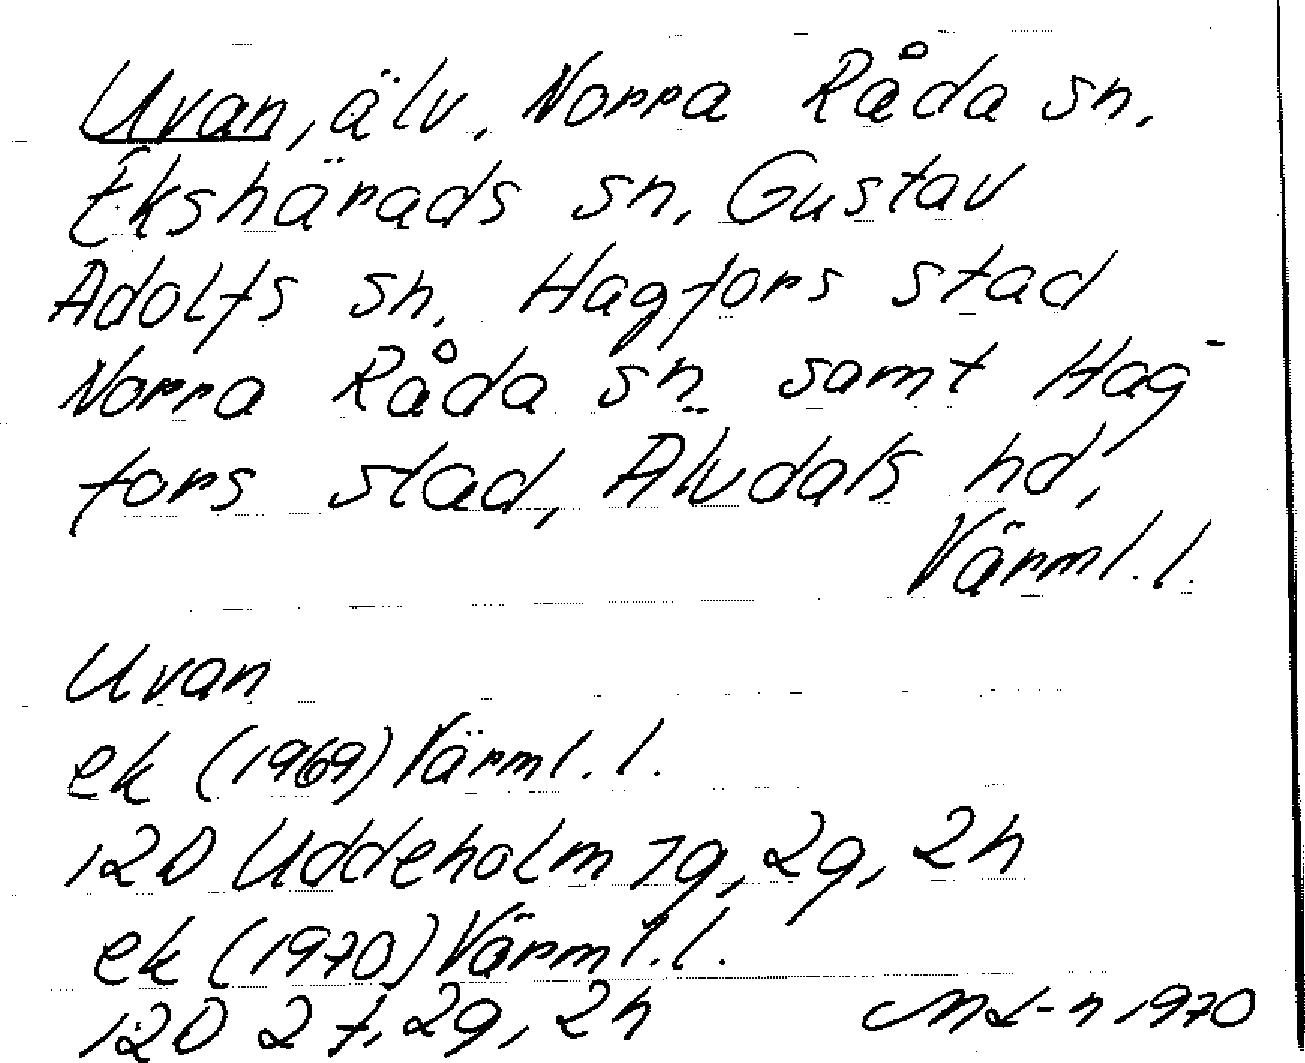 Uvan, älv. Norra Råda sn.
Ekshärads sn. Gustav
Adolfs sn. Hagfors stad
Norra Råda sn samt Hag-
fors stad, Älvdals hd,
Värml. l.
Uvan
ek (1969) Värml. l.
12D Uddeholm 1g, 2g, 2h
ek (1970) Värml. l.
12D 2f, 2g, 2h ML-n 1970